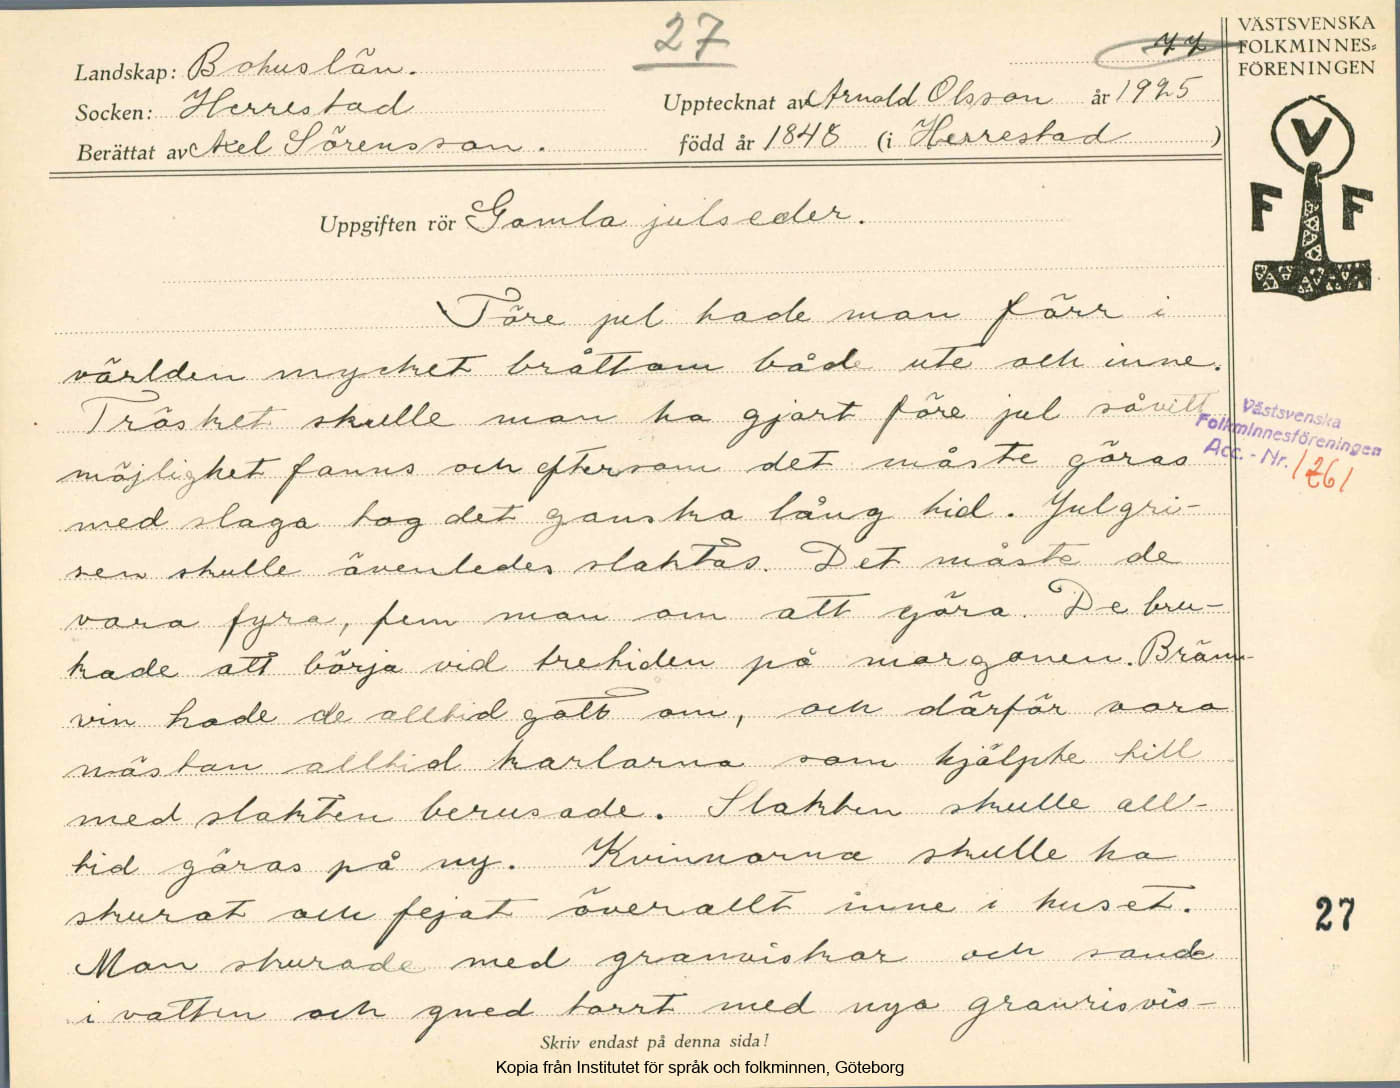 27
77
VÄSTSVENSKA
FOLKMINNES=
FÖRENINGEN
Landskap: Bohuslän.
Socken: Herrestad
Upptecknat av Arnold Olsson år 1925
Berättat av Axel Sörensson.
född år 1848 (i Herrestad )
V
F F
Uppgiften rör Gamla julseder.
Före jul hade man förr i
världen mycket bråttom både ute och inne.
Trösket skulle man ha gjort före jul såvitt
möjlighet fanns och eftersom det måste göras
med slaga tog det ganska lång tid. Julgri-
sen skulle ävenledes slaktas. Det måste de
vara fyra, fem man om att göra. De bru-
kade att börja vid tretiden på morgonen. Bränn-
vin hade de alltid gott om, och därför voro
nästan alltid karlarna som hjälpte till
med slakten berusade. Slakten skulle all-
tid göras på ny. Kvinnorna skulle ha
skurat och fejat överallt inne i huset.
Man skurade med granviskor och sand
i vatten och gned torrt med nya granrisvis-
Västsvenska
Folkminnesföreningen
Acc. - Nr. 1261
27
Skriv endast på denna sida!
Kopia från Institutet för språk och folkminnen, Göteborg